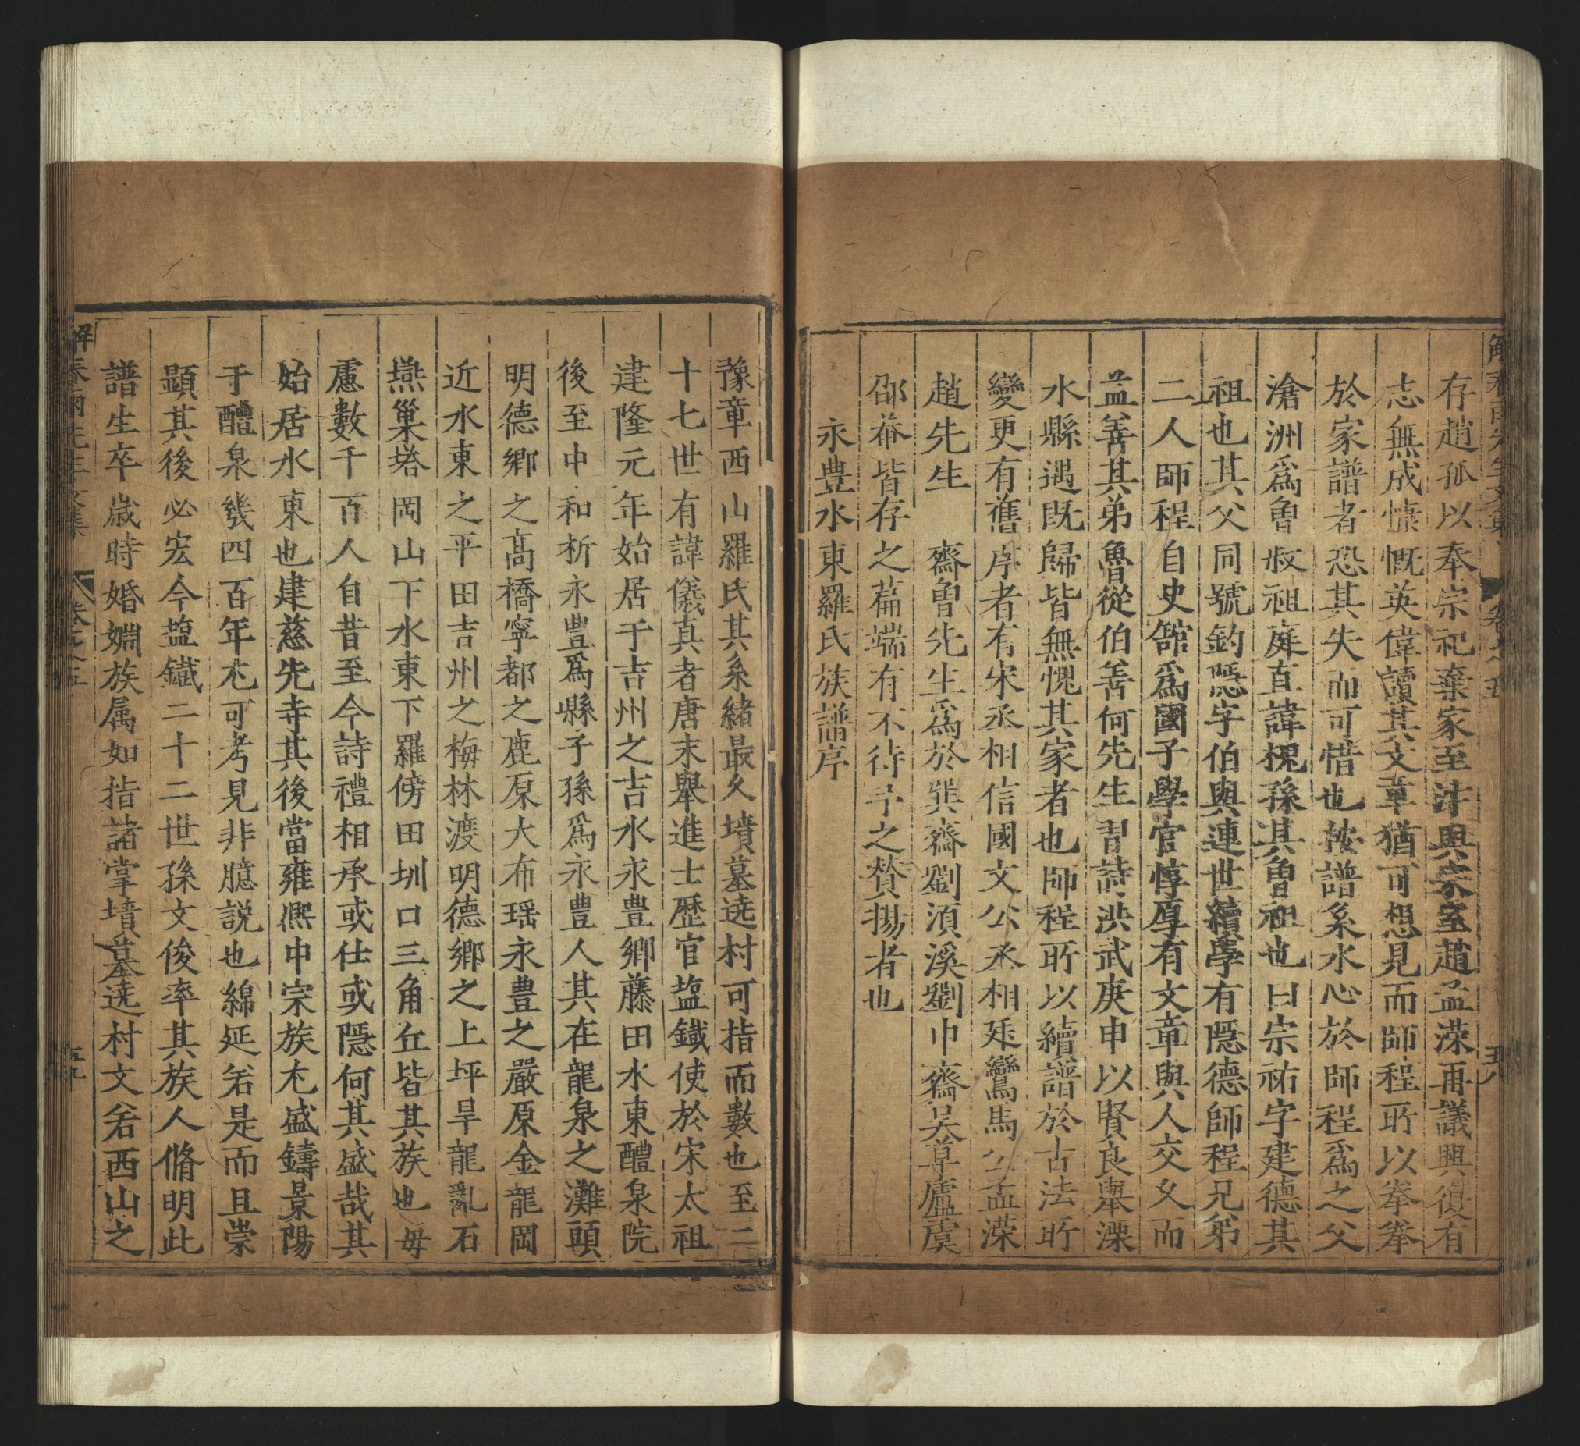 存趙孤以奉宗祀棄家至沣與宗室趙孟濚再議興復有
志無成慷慨英偉讀其文章猶可想見而師程所以拳拳
於家譜者恐其失而可惜也按譜系水心於師程爲之父
滄洲爲魯叔祖庭直諱槐孫其曾祖也曰宗祐字建德其
祖也其父同號釣隱字伯與連世續學有隱德師程兄弟
二人師程自史舘爲國子學官惇厚有文章與人交久而
益善其弟魯從伯善何先生習詩洪武庚申以賢良舉溧
水縣遇旣歸皆無愧其家者也師程所以續譜於古法所
變更有舊序者有宋丞相信國文公丞相廷鸞馬公孟濚
趙先生　齋魯先生爲於巽齋劉湏溪劉巾齋吴草廬虞
邵菴皆存之葢端有不待予之賛揚者也
永豊水東羅氏族譜序
豫章西山羅氏其系緒最久墳墓迭村可指而數也至二
十七世有諱儀真者唐末舉進士歷官塩鐵使於宋太祖
建隆元年始居于吉州之吉水永豊鄉藤田水東醴泉院
後至中和析永豊爲縣子孫爲永豊人其在龍泉之灘頭
明德鄉之髙橋寧都之鹿原大布瑶永豊之嚴原金龍岡
近水東之平田吉州之梅林渡明德鄉之上坪旱龍亂石
燕巢塔岡山下水東下羅傍田圳口三角丘皆其族也毋
慮數千百人自昔至今詩禮相承或仕或隱何其盛哉其
始居水東也建慈先寺其後當雍熈中宗族尤盛鑄景陽
于醴泉幾四百年尤可考見非臆説也綿延若是而且崇
顯其後必宏今塩鐵二十二世孫文俊率其族人脩明此
譜生卒歲時婚姻族属如指諸掌墳墓迭村文若西山之